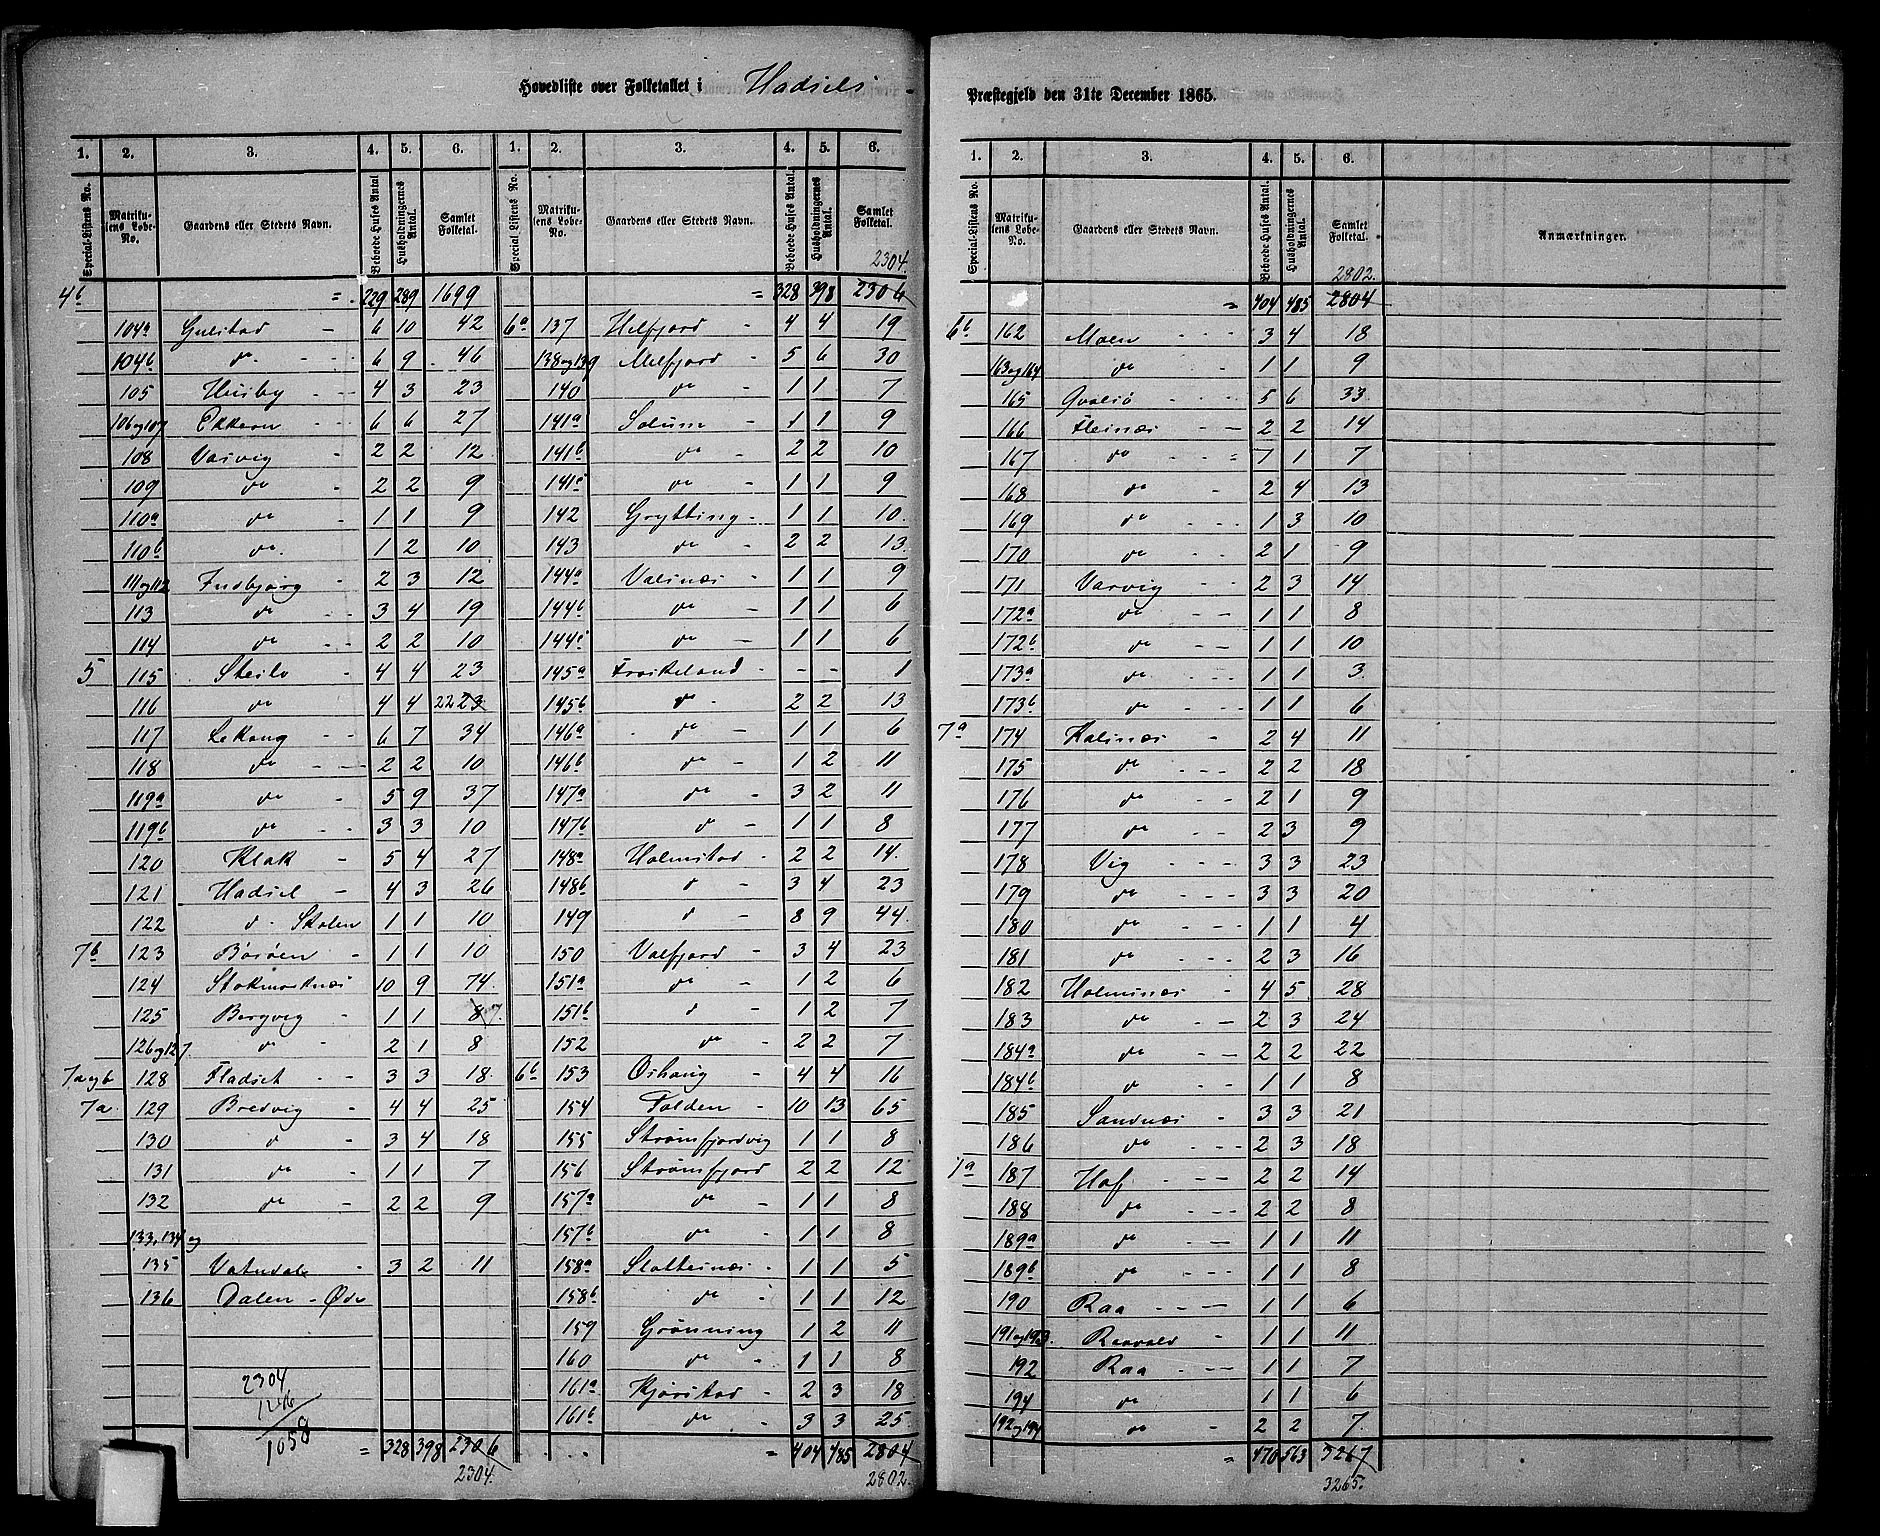 Hovedliste over Folketallet i Hadsels
Præstegjeld den 31te December 1865.
1. 2. 3. 4. 5. 6. 1. 2. 3. 4. 5. 6.
Special-Listens No. Matrikulens Løbe-No. Gaardens eller Stedets Navn. Beboede Huses Antal Husholdningernes Antal. Samlet Folketal. Special Listens No. Matrikulens Løbe-No. Gaardens eller Stedets Navn. Beboede Huses Antal. Husholdningernes Antal. Samlet Folketal.
2304.
4b = 229 289 1699 = 328 398 2306
104a Gulstad - 6 10 42 6a 137 Helfjord - 4 4 19
104b do. 6 9 46 138og139 Melfjord - 5 6 30
105 Husby 4 3 23 140 do 1 1 7
106og107 Ekkeren 6 6 27 141a Solum - 1 1 9
108 Vasvig - 2 2 12 141b do - 2 2 10
109 do - 2 2 9 141c do - 1 1 9
110a do - 1 1 9 142 Grytting - 1 1 10.
110b do. 1 2 10 143 do - 2 2 13
111og112 Indbjørg - 2 3 12 144a Valsnæs - 1 1 9
113 do - 3 4 19 144b do - 1 1 6
114 do - 2 2 10 144c do - 1 1 6
5 115 Steilo - 4 4 23 145a Froskeland - - - 1
116 do 4 4 22 23 145b d - 2 2 13
117 Lekang - 6 7 34 146a do - 1 1 6
118 do - 2 2 10 146b do - 1 2 11
119a do - 5 9 37 147a do - 3 2 11
119b do - 3 3 10 147b d - 1 1 8
120 Klak - 5 4 27 148a Holmstad - 2 2 14.
121 Hadsel - 4 3 26 148b d - 3 4 23
122 d. Skolen 1 1 10 149 d - 8 9 44.
7b 123 Børøen - 1 1 10 150 Valfjord - 3 4 23
124 Stokmarknæs 10 9 74. 151a do - 1 2 6
125 Bergvig - 1 1 8 7. 151b d - 1 2 7
126og127 d - 2 1 8 152 do - 2 2 7
7aogb 128 Fladset - 3 3 18. 6b 153 Oshaug - 4 4 16
7a. 129 Bredvig - 4 4 25 154 Folden - 10 13 65
130 d - 3 4 18 155 Strømfjordvig 1 1 8
131 do - 1 1 7 156 Strømfjord 2 2 12
132 do - 2 2 9 157a do 1 1 8
133, 134 og 157b do - 1 1 8
135 Vatndal - 3 2 11 158a Slottesnæs - 1 1 5
136 Dalen - Øde 158b do - 1 1 12
159 Grønning 1 2 11
160 do - 1 1 8
2304 161a Kjørstad - 2 3 18
1246 161b do - 3 3 25
1058
= 328 398 2306 = 404 485 2804
2304. 2802.
1. 2. 3. 4. 5. 6.
Special-Listens No. Matrikulens Løbe-No. Gaardens eller Stedets Navn. Beboede Huses Antal. Husholdningernes Antal. Samlet Folketal. Anmærkninger.
2802.
= 404 485 2804
6b 162 Moen - 3 4 18
163og164 do - 1 1 9
165 Qvalsø - 5 6 33.
166 Fleinæs - 2 2 14
167 do - 7 1 7
168 do - 2 4 13
169 do - 1 3 10
170 do - 2 1 9
171 Varvig - 2 3 14
172a do - 1 1 8
172b do - 1 1 10
173a do - 1 1 3.
173b do - 1 1 6
7a 174 Kalsnæs - 2 4 11
175 do - 2 2 18
176 do - 2 1 9
177 do - 2 3 9
178 Vig - 3 3 23
179 do - 3 3 20
180 do - 1 1 4
181 do - 2 3 16
182 Holmsnæs - 4 5 28
183 do - 2 3 24
184a do - 2 2 22
184b d - 1 1 8
185 Sandnæs - 3 3 21
186 do - 2 3 18
1a 187 Hof - 2 2 14
188 do - 2 2 8
189a do - 1 1 11
189b do - 1 1 8
190 Raa - 1 1 6
191og193. Raavold - 1 1 11
192 Raa - 1 1 7
194 do 1 1 6
192og194 do - 2 2 7.
= 470 563 3267
3265.